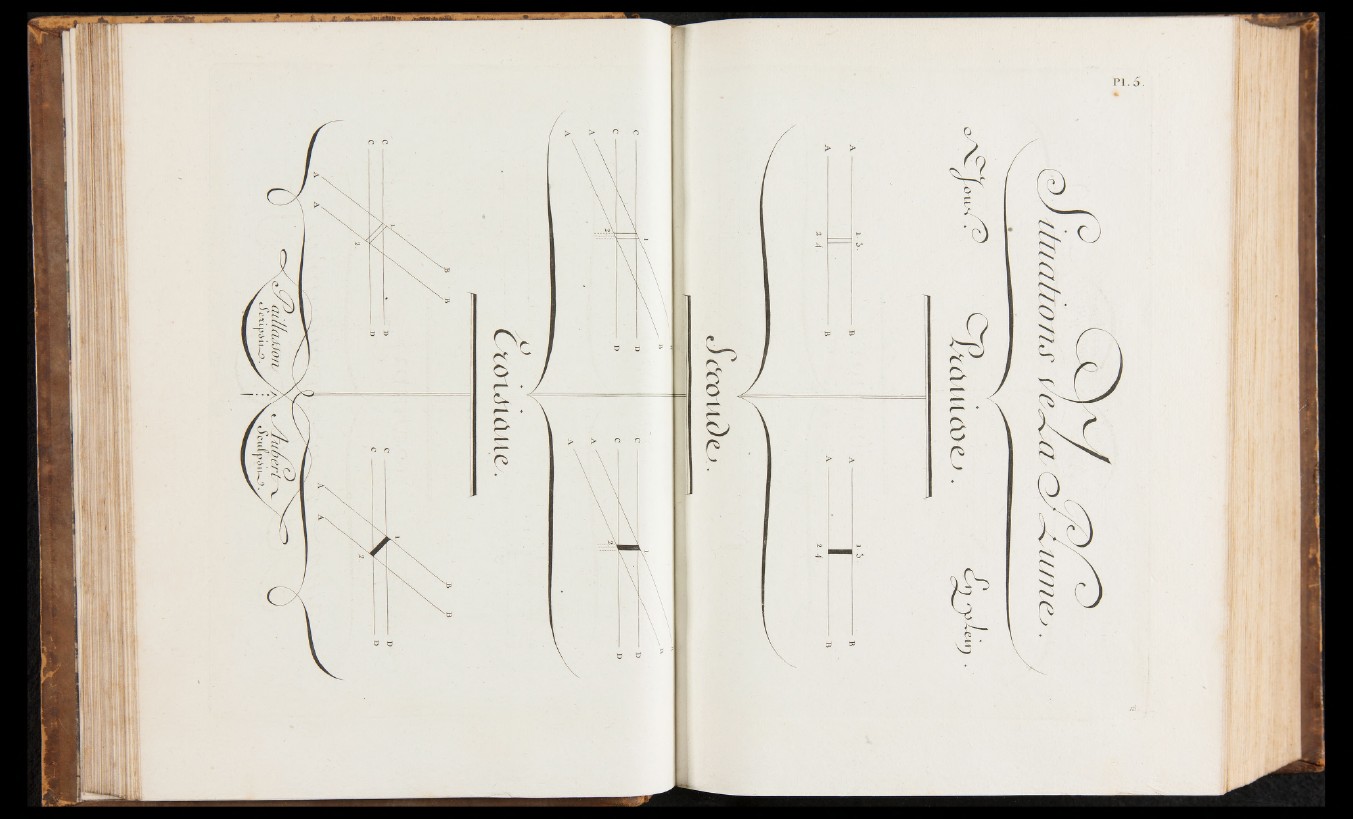 Pl. 5.
Situations de La Plume.
A Jour.
En plein.
Premiere.
A B
A B
1 3.
2 4
A B
A B
1 3.
2 4
Seconde.
C D
C D
A B
A B
1
2
C D
C D
A B
A B
1
2
Troisieme.
C D
C D
A B
A B
1
2
C D
C D
A B
A B
1
2
Paillasson
Scripsit.
Aubert
Sculpsit.